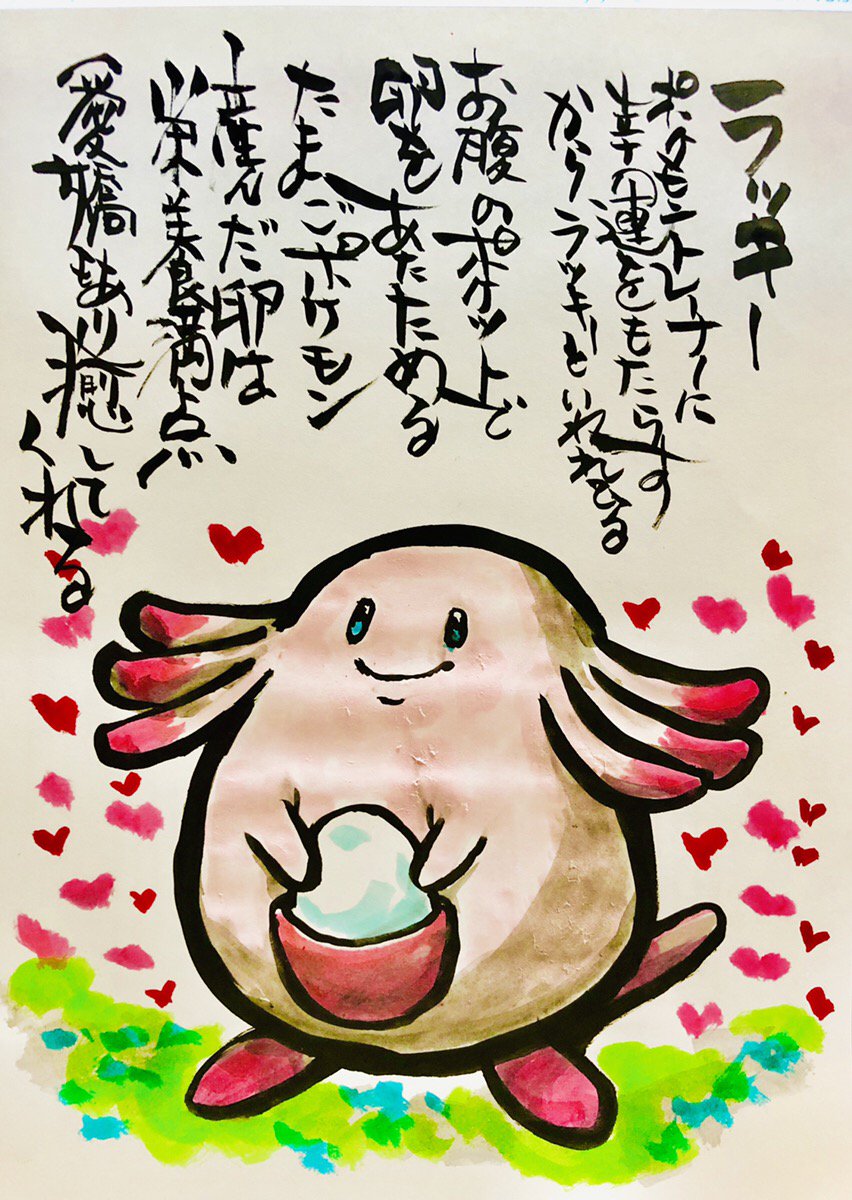 ラッキー
ポケモントレーナーに
幸運をもたらす
からラッキーといわれる
お腹のポケットで
卵をあたためる
たまごポケモン
産んだ卵は
栄養美食満点
愛嬌もあり癒して
くれる